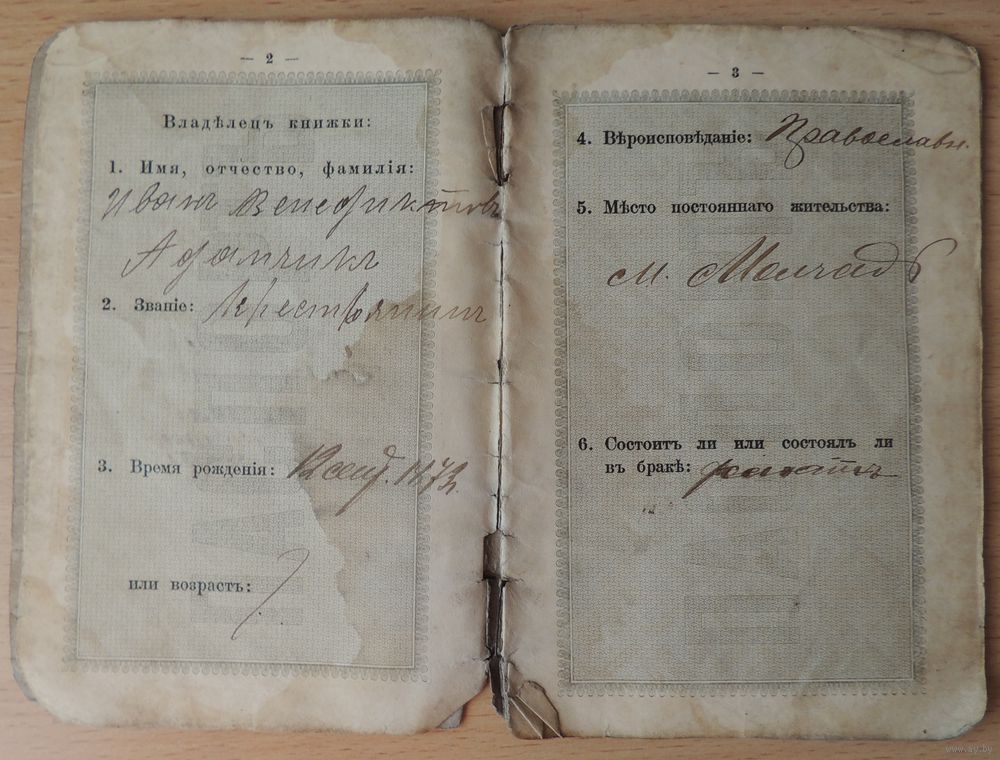 — 2 —
Владѣлецъ книжки:
1. Имя, отчество, фамилія:
Иванъ Венедиктовъ
Адамчикъ
2. Званіе: Крестьянинъ
3. Время рожденія: 1873
или возрастъ:
— 3 —
4. Вѣроисповѣданіе: Православн.
5. Мѣсто постояннаго жительства:
м. Молчадь
6. Состоитъ ли или состоялъ ли
въ бракѣ: женатъ
www.ay.by